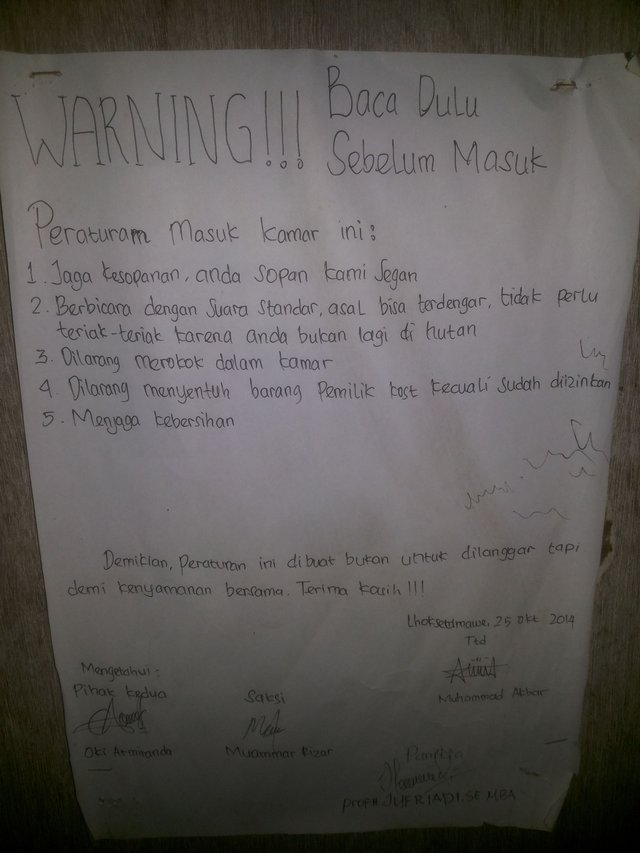 WARNING!!! Baca Dulu
Sebelum Masuk
Peraturan Masuk Kamar ini :
1. Jaga kesopanan, anda sopan kami Segan
2. Berbicara dengan Suara standar, asal bisa terdengar, tidak perlu
teriak-teriak karena anda bukan lagi di hutan
3. Dilarang merokok dalam kamar
4. Dilarang menyentuh barang Pemilik kost kecuali sudah diizinkan
5. Menjaga kebersihan
Demikian, Peraturan ini dibuat bukan untuk dilanggar tapi
demi kenyamanan bersama. Terima kasih !!!
Lhokseumawe, 25 Okt 2014
Ttd
Muhammad Akbar
Mengetahui :
Pihak Kedua
Saksi
Oki Armanda
Muammar Rizar
JUFRIADI.SE MBA